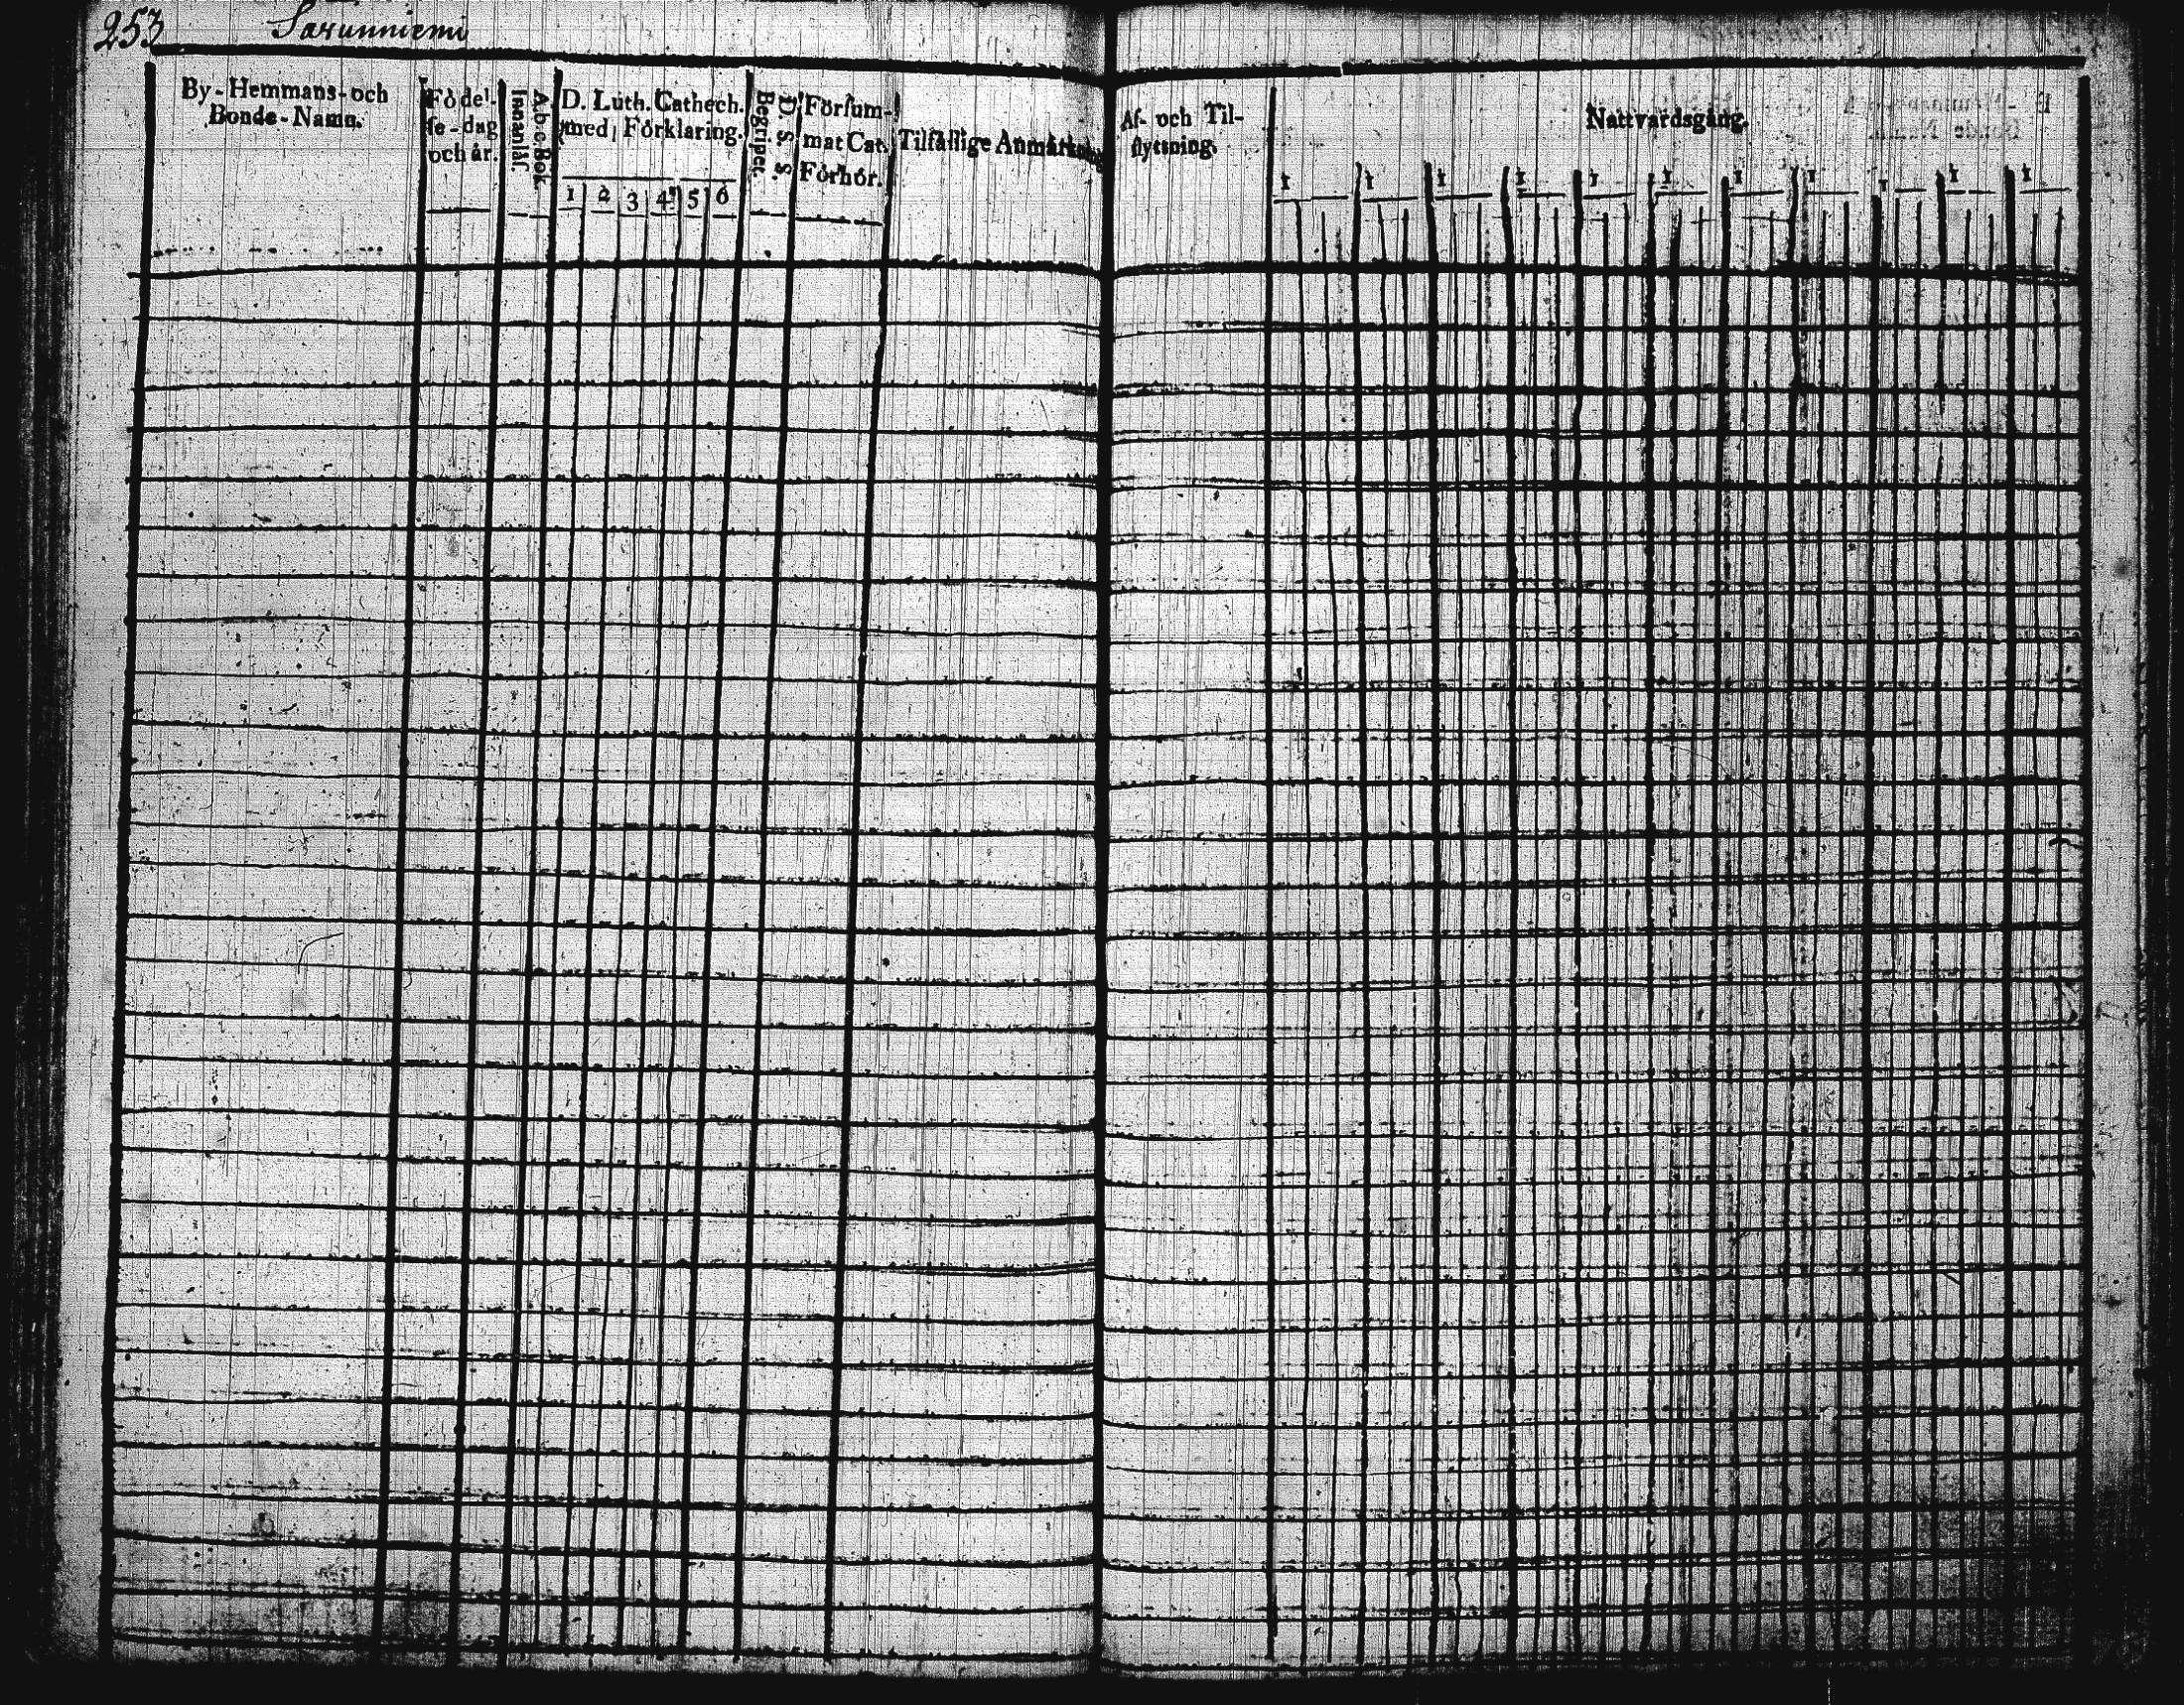 253 Sarunniemi
By-Hemmans-och
Bonde-Namn.
Födel-
se-dag
och år.
A b c Bok.
Innanläs.
D. Luth. Cathech.
med Förklaring.
1 2 3 4 5 6
D. S. S.
Begripet.
Försum-
mat Cat.
Förhör.
Tilfällige Anmärkning
Af- och Til-
flyttning.
Nattvardsgång.
1 1 1 1 1 1 1 1 1 1 1